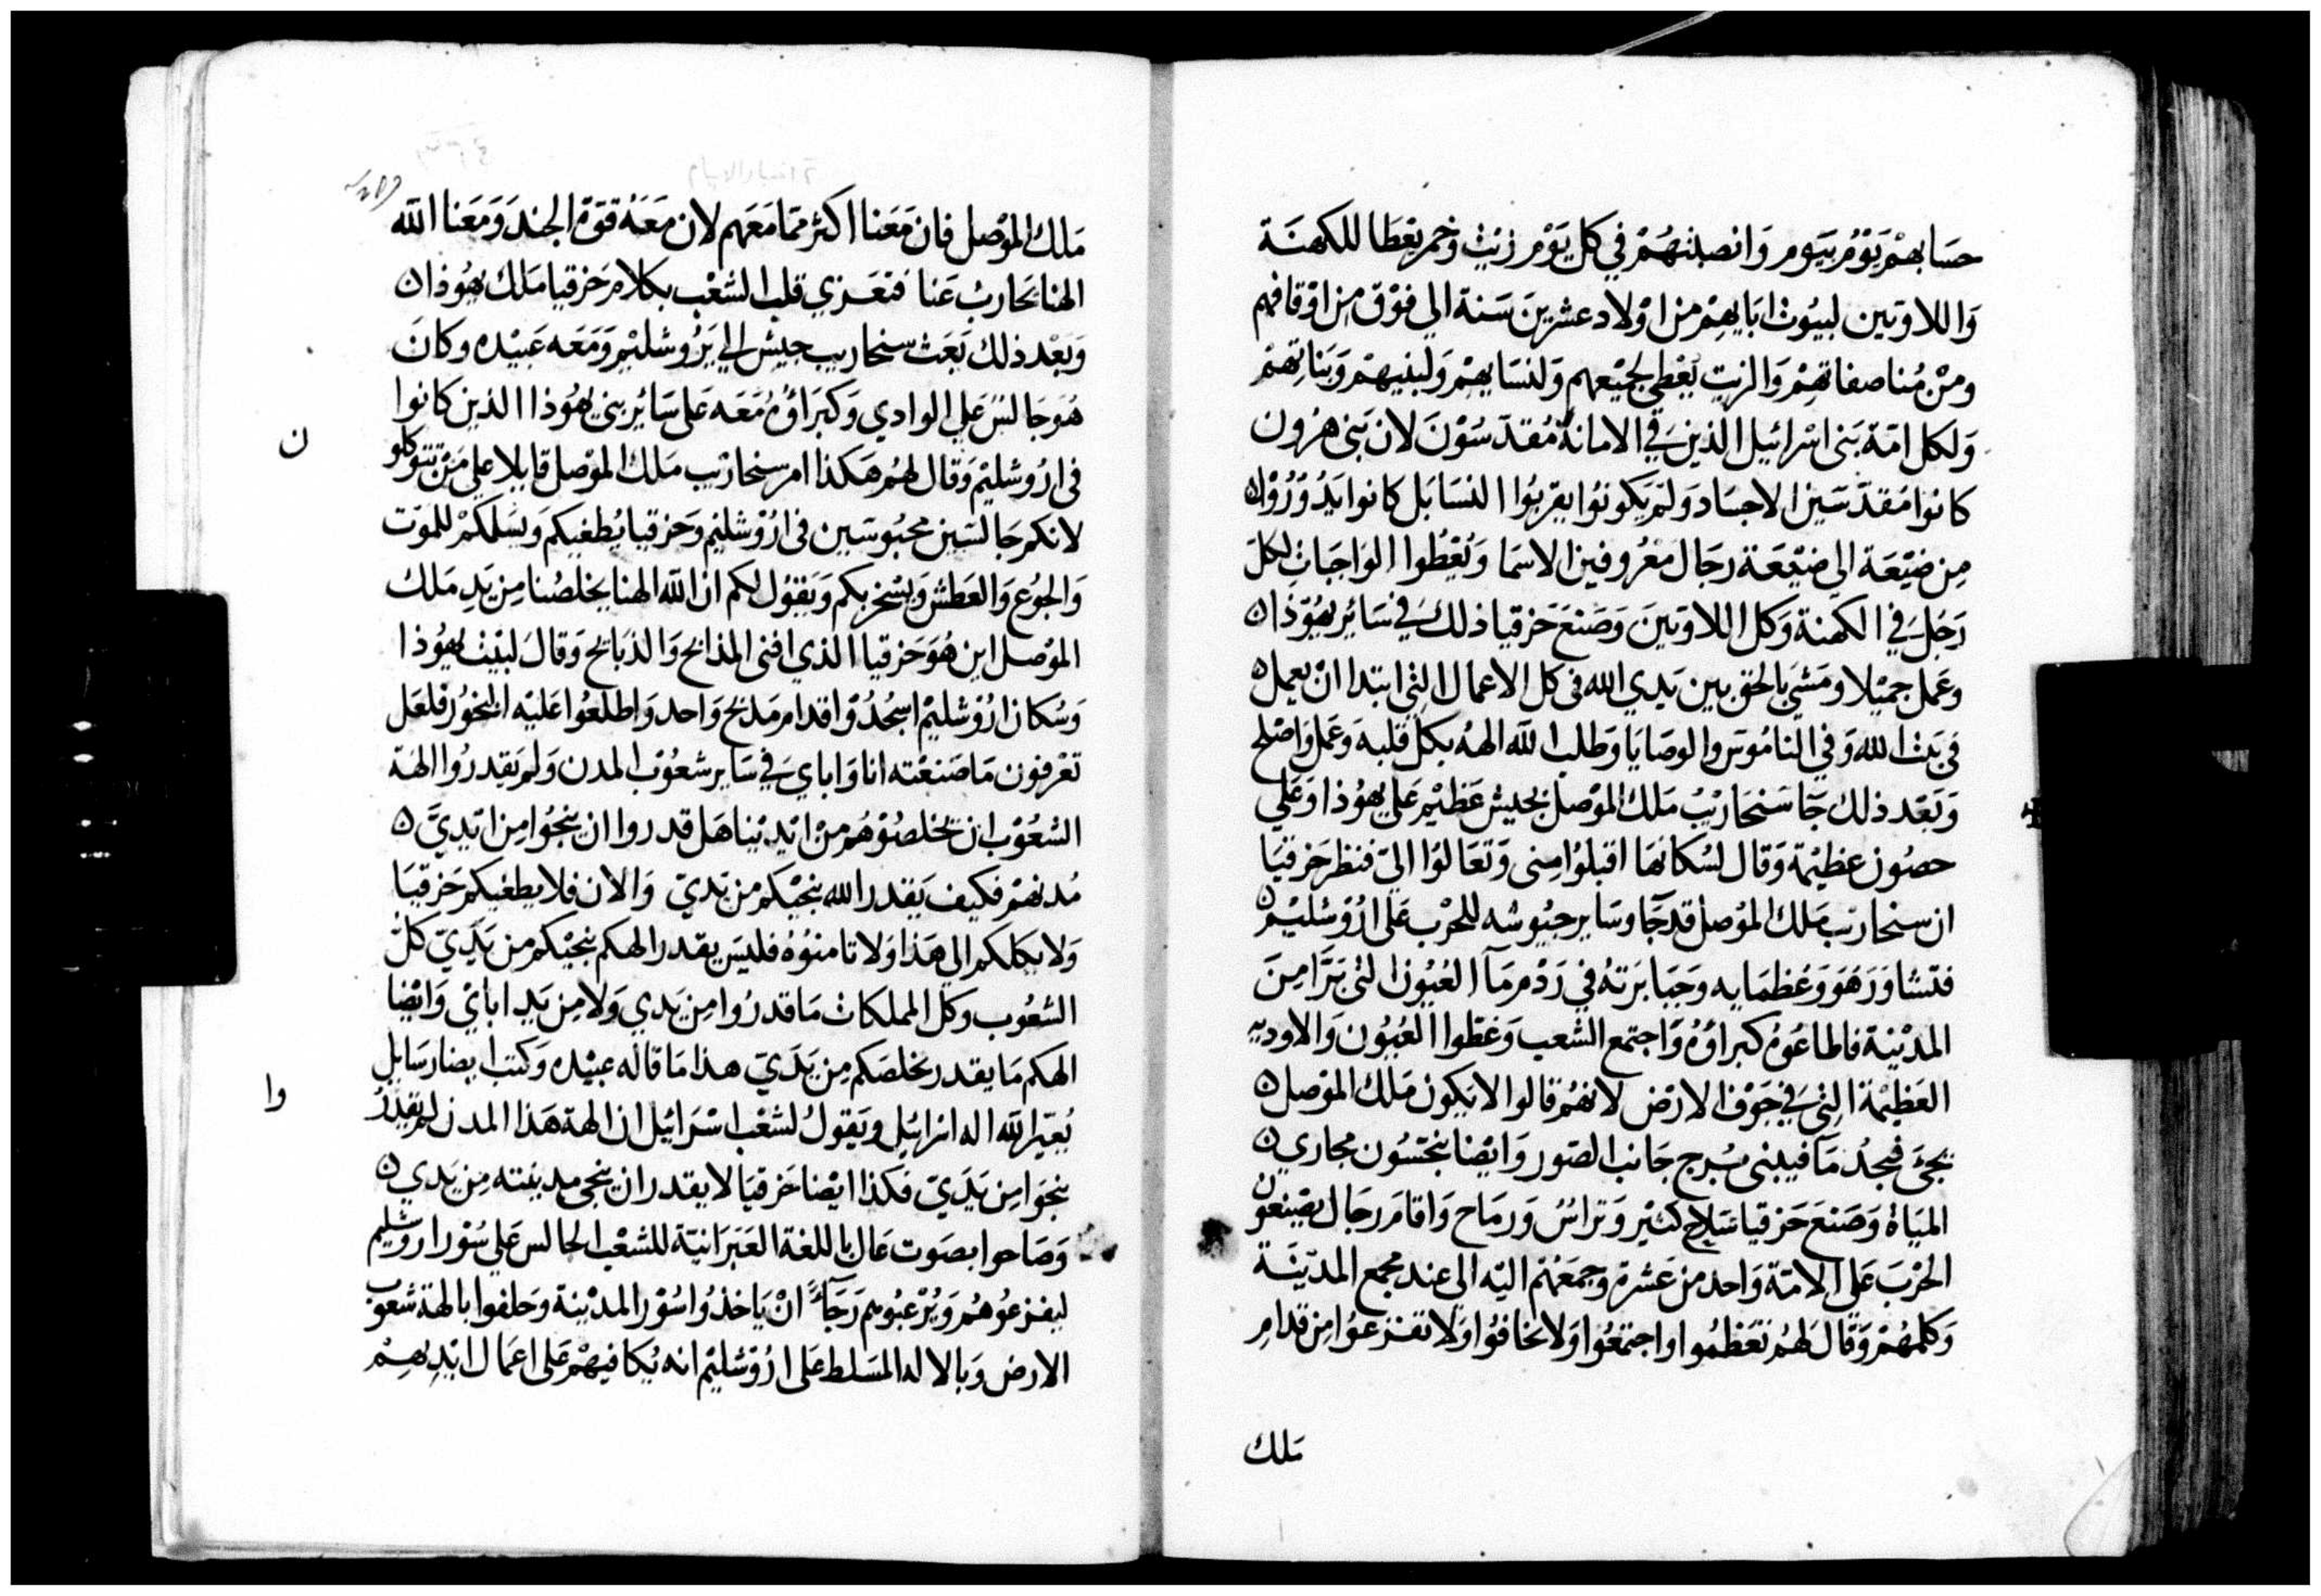 حسابهم يوم بيوم وانصبتهم في كل يوم زيت وخمر يعطا للكهنة
واللاويين لبيوت ابايهم من اولاد عشرين سنة الي فوق من اوقافهم
ومن مناصفاتهم والزيت يعطي لجميعهم ولنسايهم ولبنيهم وبناتهم
ولكل امة بني اسرائيل الذين في الامانة مقدسون لان بني هرون
كانوا مقدسين الاجساد ولم يكونوا يقربوا النسا بل كانوا يدورون
من ضيعة الي ضيعة رجال معروفين الاسما ويعطوا الواجبات لكل
رجل في الكهنة وكل اللاويين وصنع حزقيا ذلك في سائر يهوذا ن
وعمل جميلا ومشي بالحق بين يدي الله في كل الاعمال التي ابتدا ان يعمل ن
في بيت الله وفي الناموس والوصايا وطلب الله الهه بكل قلبه وعمل واصلح
وبعد ذلك جا سنحاريب ملك الموصل بجيش عظيم علي يهوذا وعلي
حصون عظيمة وقال لسكانها اقبلوا مني وتعالوا الي فنظر حزقيا
ان سنحاريب ملك الموصل قد جا وساير جيوشه للحرب على اروشليم ن
فتشاور هو وعظمايه وجبابرته في ردم مآ العيون التي برا من
المدينة فاطاعوه كبراؤه واجتمع الشعب وغطوا العيون والاوديه
العظيمة التي في جوف الارض لانهم قالوا لا يكون ملك الموصل ن
يجي فيجد ما فيبني برج جانب الصور وايضا يحتسون مجاري ن
المياه وصنع حزقيا سلاح كثير وتراس ورماح واقام رجال يصنعون
الحرب على الامة واحد من عشرة وجمعهم اليه الى عند مجمع المدينة
وكلمهم وقال لهم تعظموا واجتمعوا ولا تخافوا ولا تفزعوا من قدام
ملك
ملك الموصل فان معنا اكثر مما معهم لان معه قوة الجند ومعنا الله
الهنا يحارب عنا فتعزي قلب الشعب بكلام حزقيا ملك يهوذا ن
وبعد ذلك بعث سنحاريب جيش الي يروشليم ومعه عبيده وكان
هو جالس علي الوادي وكبراؤه معه على سائر بني يهوذا الذين كانوا
في اروشليم وقال لهم هكذا امر سنحاريب ملك الموصل قايلا علي من تتوكلو
ن
لانكم جالسين محبوسين في اروشليم وحزقيا يطغيكم ويسلمكم للموت
والجوع والعطش ويسخر بكم ويقول لكم ان الله الهنا يخلصنا من يد ملك
الموصل اين هو حزقيا الذي افنى المذابح والذبائح وقال لبيت يهوذا
وسكان اروشليم اسجدوا قدام مذبح واحد واطلعوا عليه البخور فلعل
تعرفون ما صنعته انا واباي في ساير شعوب المدن ولم يقدروا الهة
الشعوب ان يخلصوهم من ايدينا هل قدروا ان ينجوا من ايدي ن
مدنهم فكيف يقدر الله ينجيكم من يدي والان فلا يطغيكم حزقيا
ولا يكلكم الي هذا ولا تامنوه فليس يقدر الهكم ينجيكم من يدي كل
الشعوب وكل المملكات ما قدروا من يدي ولا من يد اباي وايضا
الهكم ما يقدر يخلصكم من يدي هذا ما قاله عبيده وكتب ايضا رسايل
وا
يعير الله اله اسرائيل ويقول لشعب اسرائيل ان الهة هذا المدن لم يقدر
ينجوا من يدي فكذا ايضا حزقيا لا يقدر ان ينجي مدينته من يدي ن
وصاحوا بصوت عال باللغة العبرانية للشعب الجالس علي سور اروشليم
ليفزعوهم ويرعبوهم رجآء ان ياخذوا سور المدينة وحلفوا بالهة شعوب
الارض وبالاله المسلط على اروشليم انه يكافيهم على اعمال ايديهم